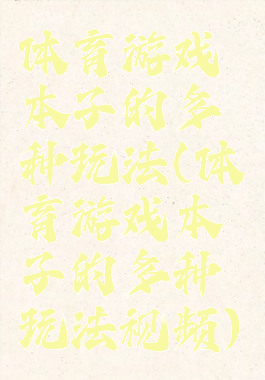 体育游戏
本子的多
种玩法(体
育游戏本
子的多种
玩法视频)